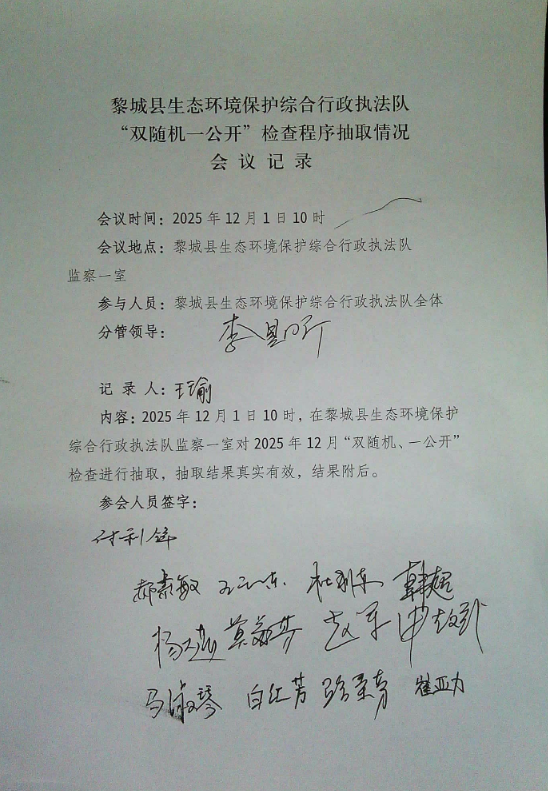 黎城县生态环境保护综合行政执法队
“双随机一公开”检查程序抽取情况
会议记录
会议时间：2025年12月1日10时
会议地点：黎城县生态环境保护综合行政执法队
监察一室
参与人员：黎城县生态环境保护综合行政执法队全体
分管领导：李
记录人：王瑜
内容：2025年12月1日10时，在黎城县生态环境保护
综合行政执法队监察一室对2025年12月“双随机、一公开”
检查进行抽取，抽取结果真实有效，结果附后。
参会人员签字：
郝素敏 杜利东 韩超
赵军
马淑琴 白红芳 崔亚力